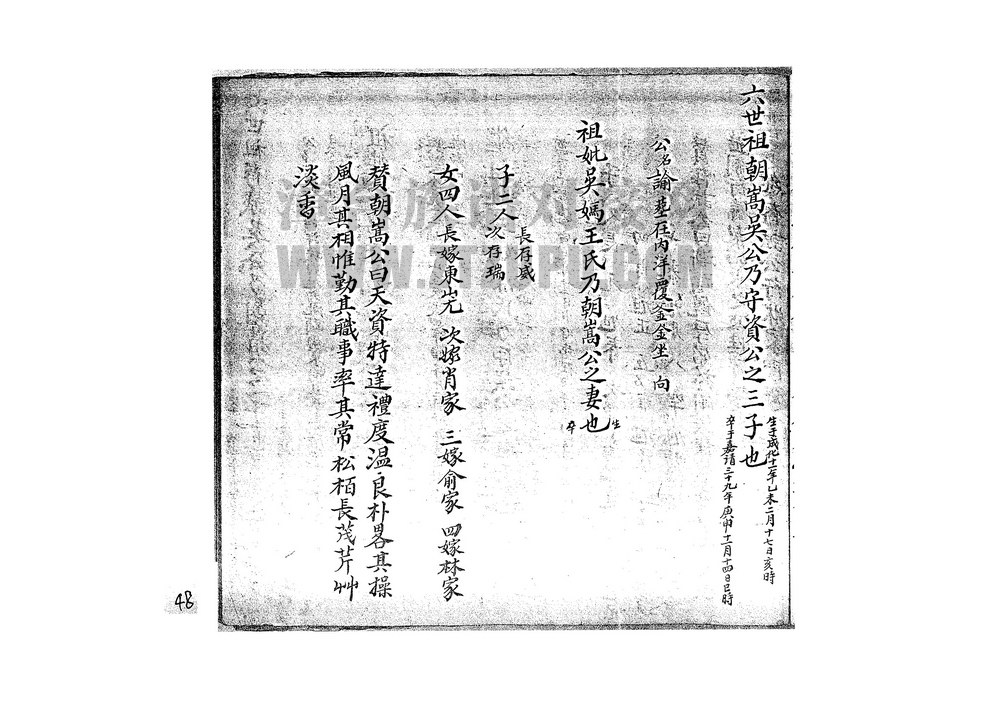 六世祖朝嵩吳公乃守資公之三子也
生于成化十一年乙未二月十七日亥時
卒于嘉靖三十九年庚申十二月十四日巳時
公名諭墓在內洋覆釜金坐 向
祖妣吳媽王氏乃朝嵩公之妻也
生
卒
子二人
長存威
次存瑞
女四人長嫁東山尤 次嫁肖家 三嫁俞家 四嫁林家
贊朝嵩公曰天資特達禮度温良朴畧其操
風月其相惟勤其職事率其常松栢長茂芹艸
淡香
WWW.ZTZUPU.COM
48